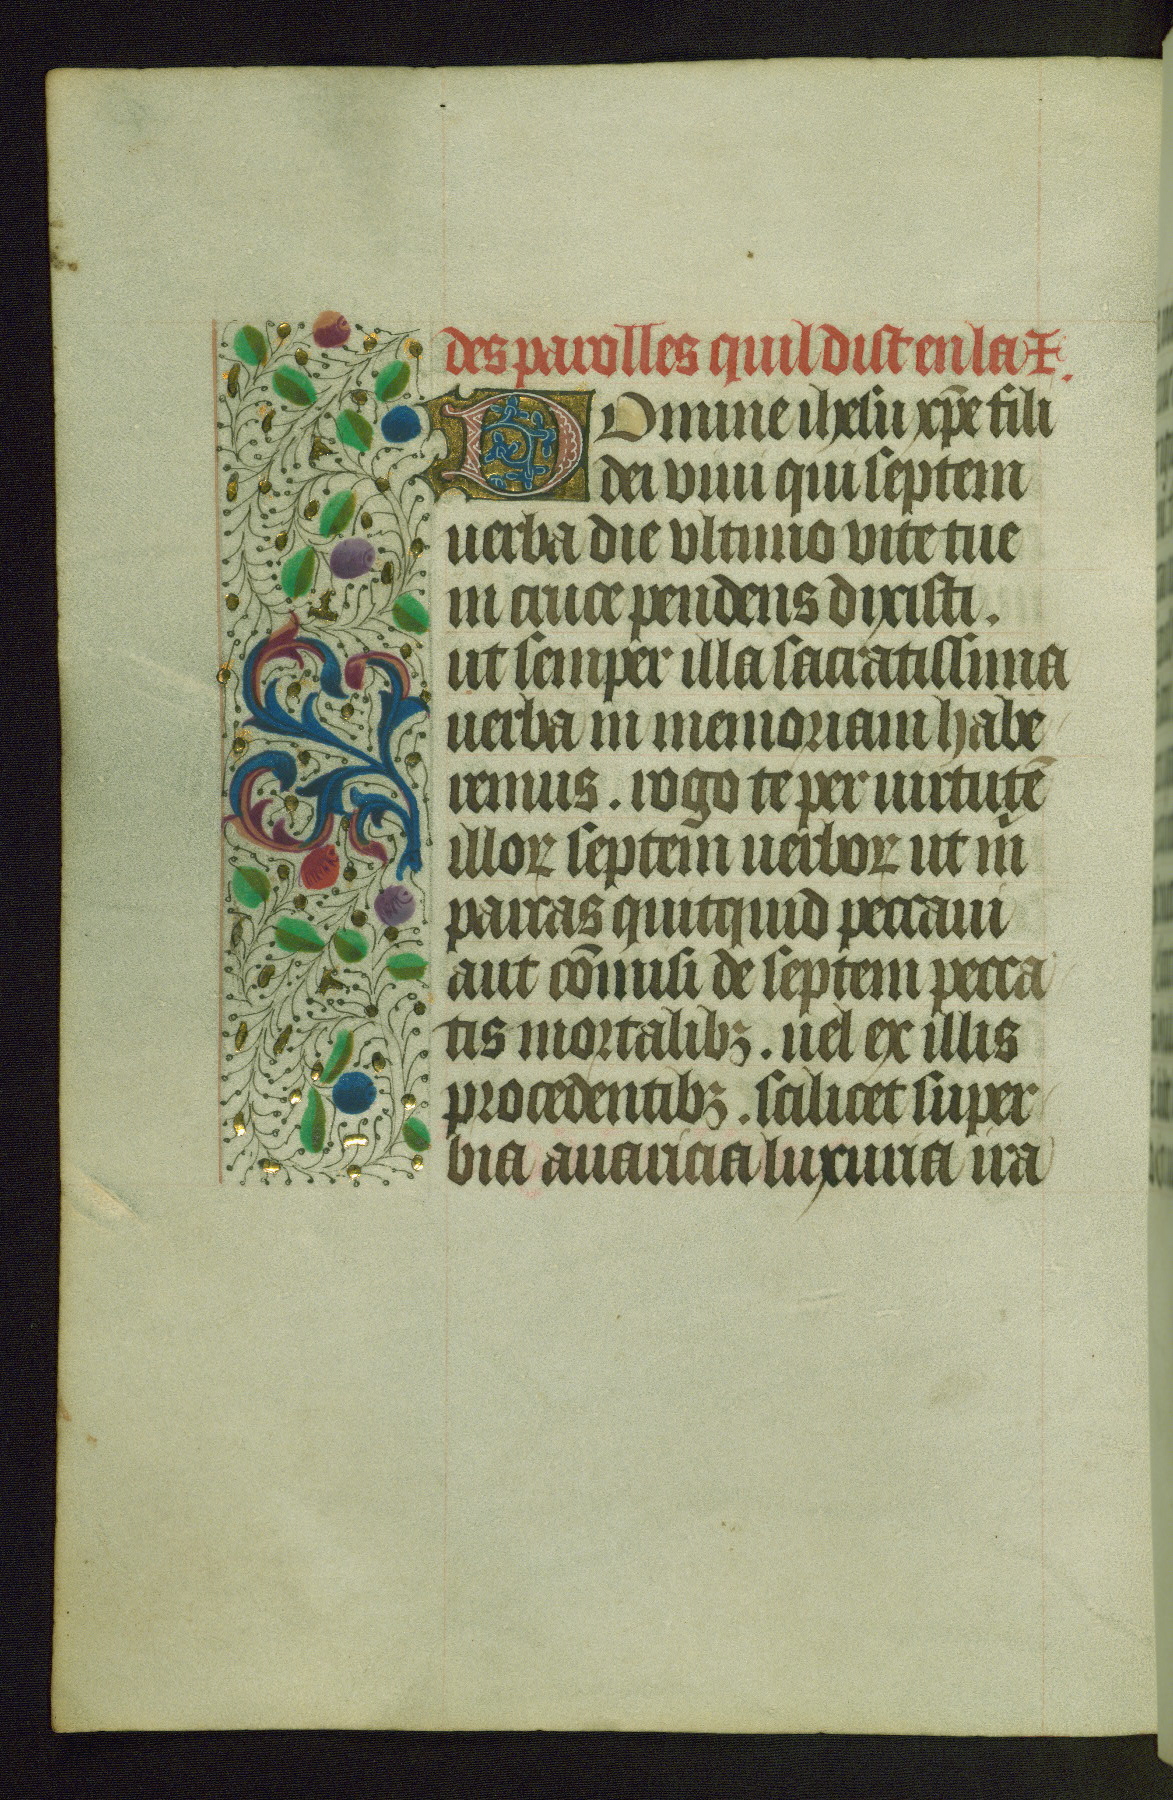 des parolles quil dist en la ✠.
Domine ihesu xp̅e fili
dei viui qui septem
uerba die vltimo vite tue
in cruce pendens dixisti.
ut semper illa sacratissima
uerba in memoriam habe
remus. rogo te per uirtutē
illoꝝ septem uerboꝝ ut m̄
parcas quitquid peccaui
aut cōmisi de septem pecca
tis mortalibꝫ. uel ex illis
procedentibꝫ. scilicet super
bia auaricia luxuria ira